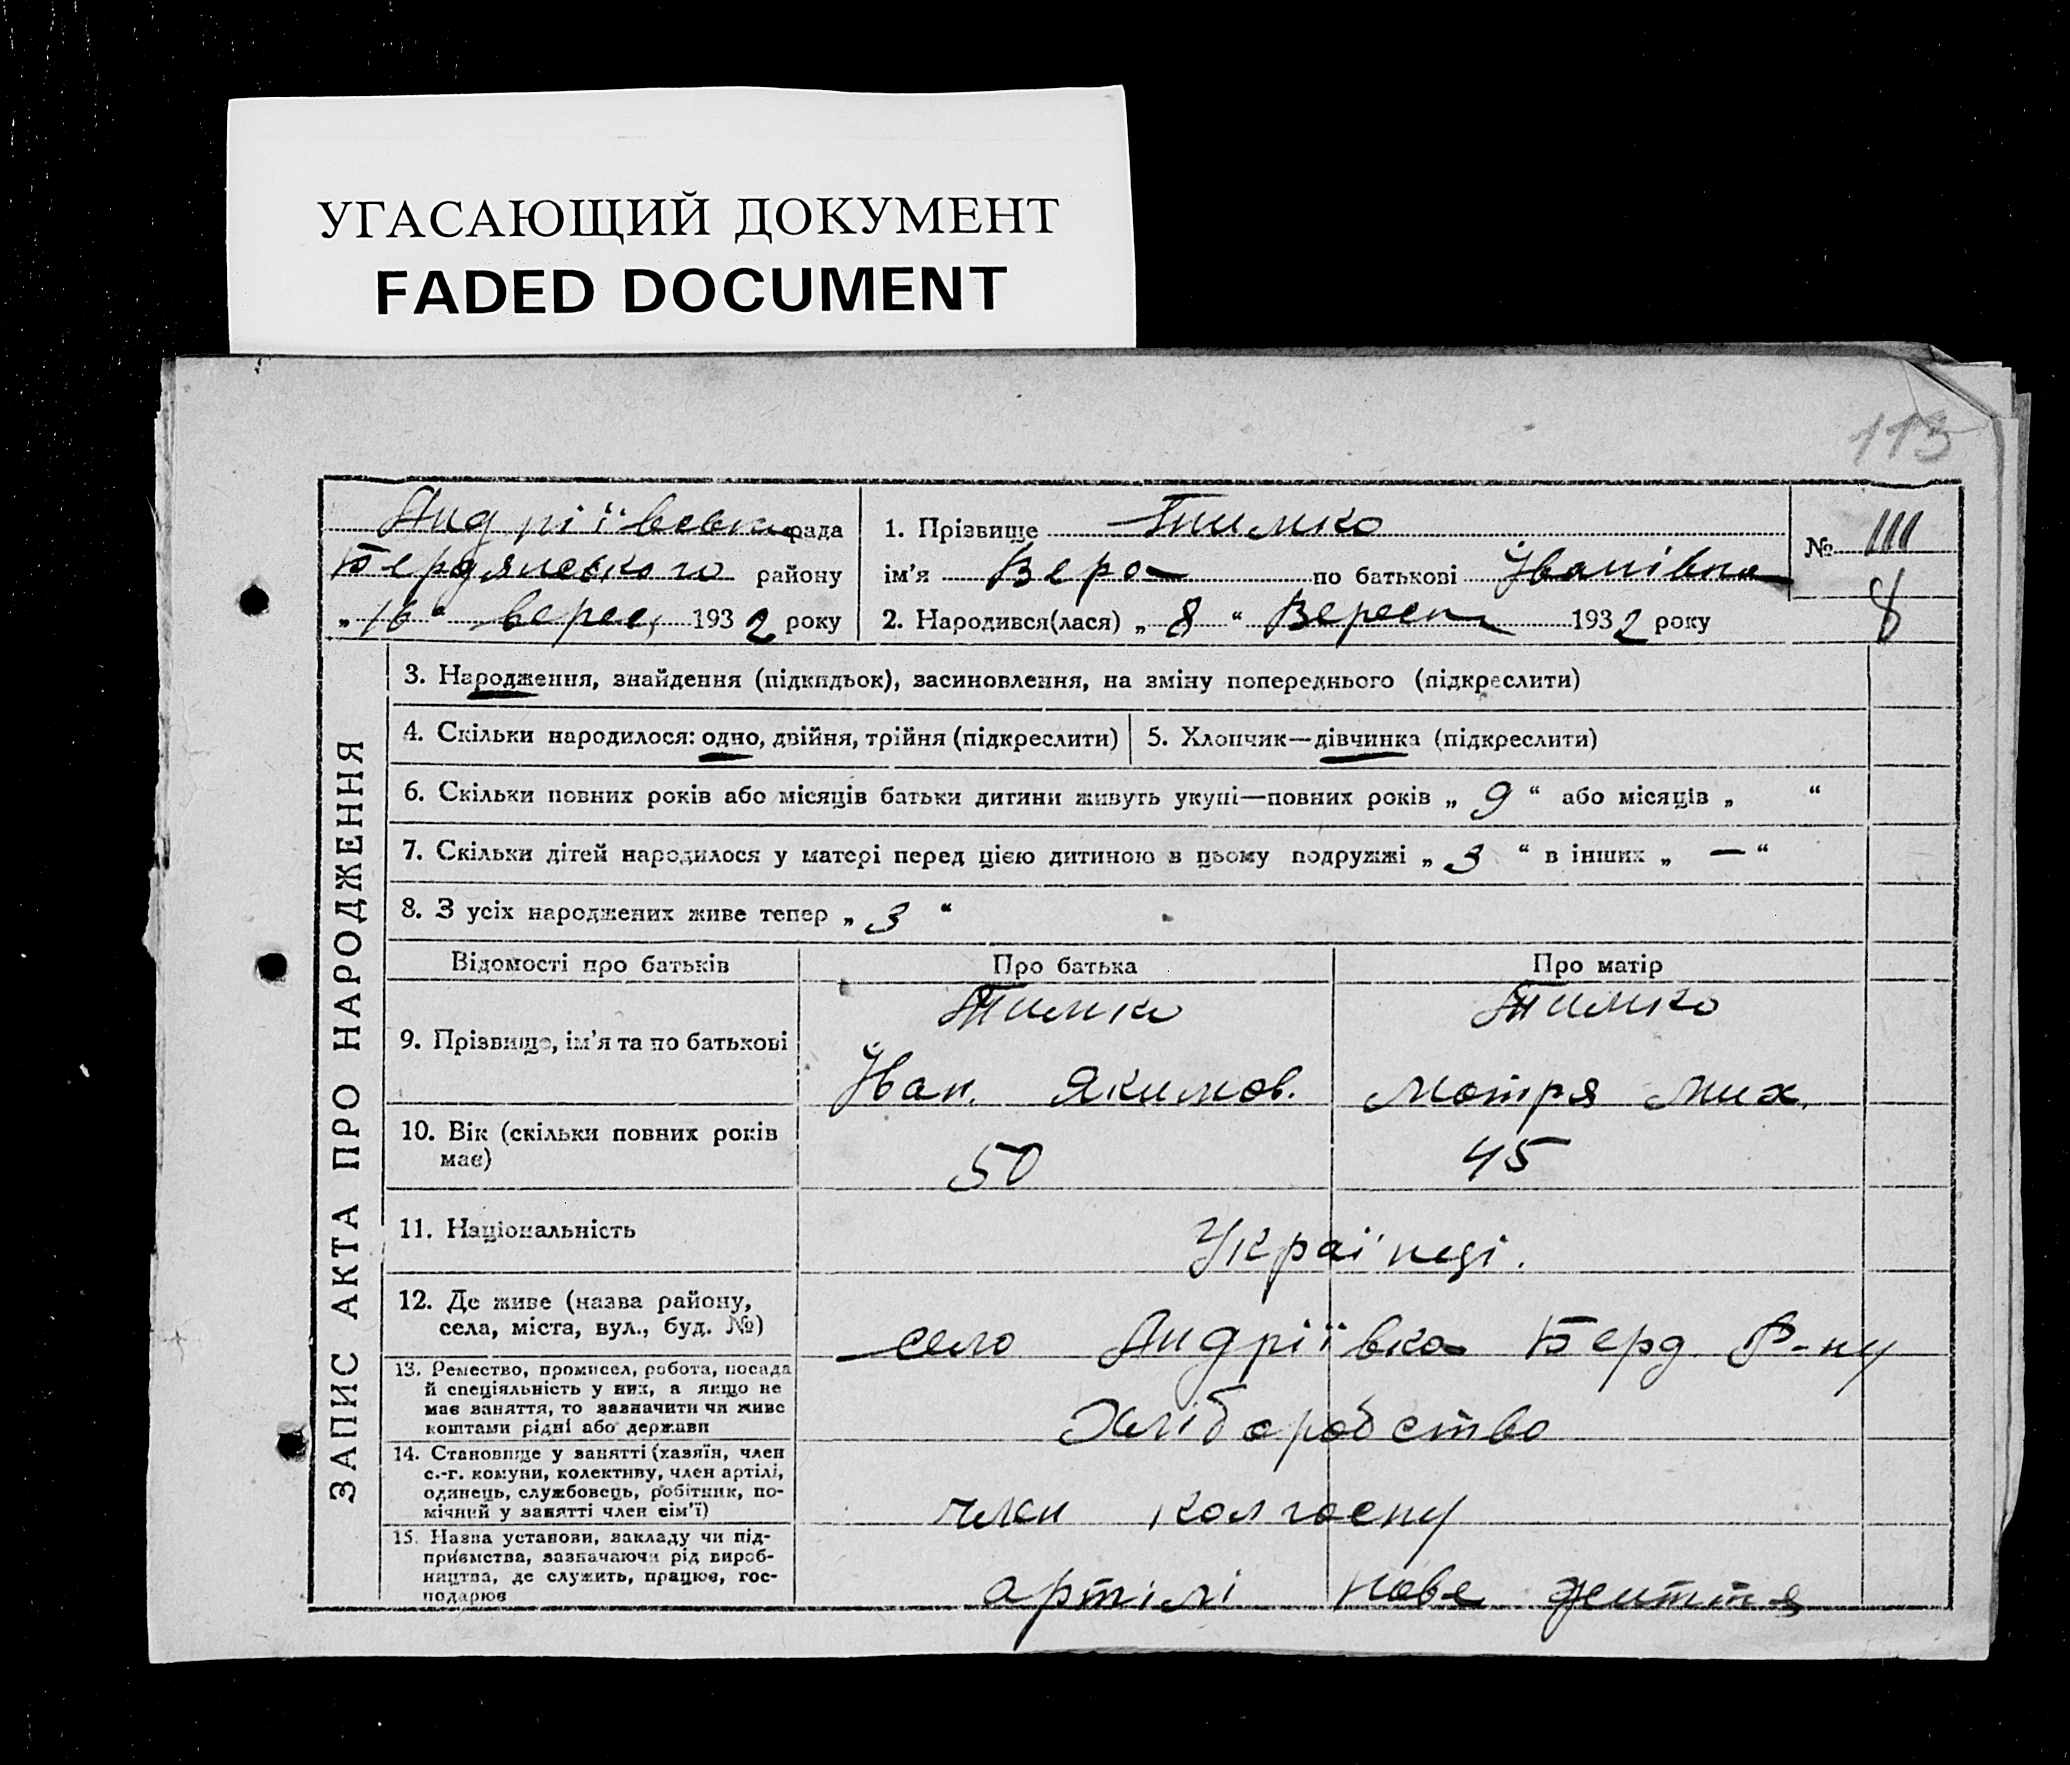 УГАСАЮЩИЙ ДОКУМЕНТ
FADED DOCUMENT
113
ЗАПИС АКТА ПРО НАРОДЖЕННЯ
Андріївська рада
Бердянського району
„16“ верес, 1932 року
1. Прізвище Тимко
ім’я Вера по батькові Іванівна
2. Народився(лася) „8“ Вересня 1932 року
№ 111
8
3. Народження, знайдення (підкидьок), засиновлення, на зміну попереднього (підкреслити)
4. Скільки народилося: одно, двійня, трійня (підкреслити)
5. Хлопчик—дівчинка (підкреслити)
6. Скільки повних років або місяців батьки дитини живуть укупі—повних років „9“ або місяців „ “
7. Скільки дітей народилося у матері перед цією дитиною в цьому подружжі „3“ в інших „—“
8. З усіх народжених живе тепер „3“
Відомості про батьків Про батька Про матір
9. Прізвище, ім’я та по батькові
Тимко
Іван. Якимов.
Тимко
Мотря Мих.
10. Вік (скільки повних років
має)
50 45
11. Національність
Українці.
12. Де живе (назва району,
села, міста, вул., буд. №)
село Андріївка Берд. Р-ну
13. Ремество, промисел, робота, посада
й спеціяльність у них, а якщо не
має заняття, то зазначити чи живе
коштами рідні або держави
Хліборобство
14. Становище у занятті (хазяїн, член
с.-г. комуни, колективу, член артілі,
одинець, службовець, робітник, по-
мічний у занятті член сім’ї)
член колгоспу
15. Назва установи, закладу чи під-
приємства, зазначаючи рід вироб-
ництва, де служить, працює, гос-
подарює
артілі нове життя